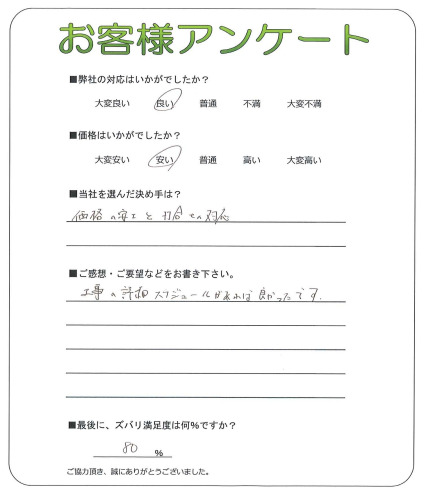 お客様アンケート
■弊社の対応はいかがでしたか？
大変良い 良い 普通 不満 大変不満
■価格はいかがでしたか？
大変安い 安い 普通 高い 大変高い
■当社を選んだ決め手は？
価格の安さと打合せの対応
■ご感想・ご要望などをお書き下さい。
工事の詳細スケジュールがあれば良かったです.
■最後に、ズバリ満足度は何%ですか？
80 %
ご協力頂き、誠にありがとうございました。